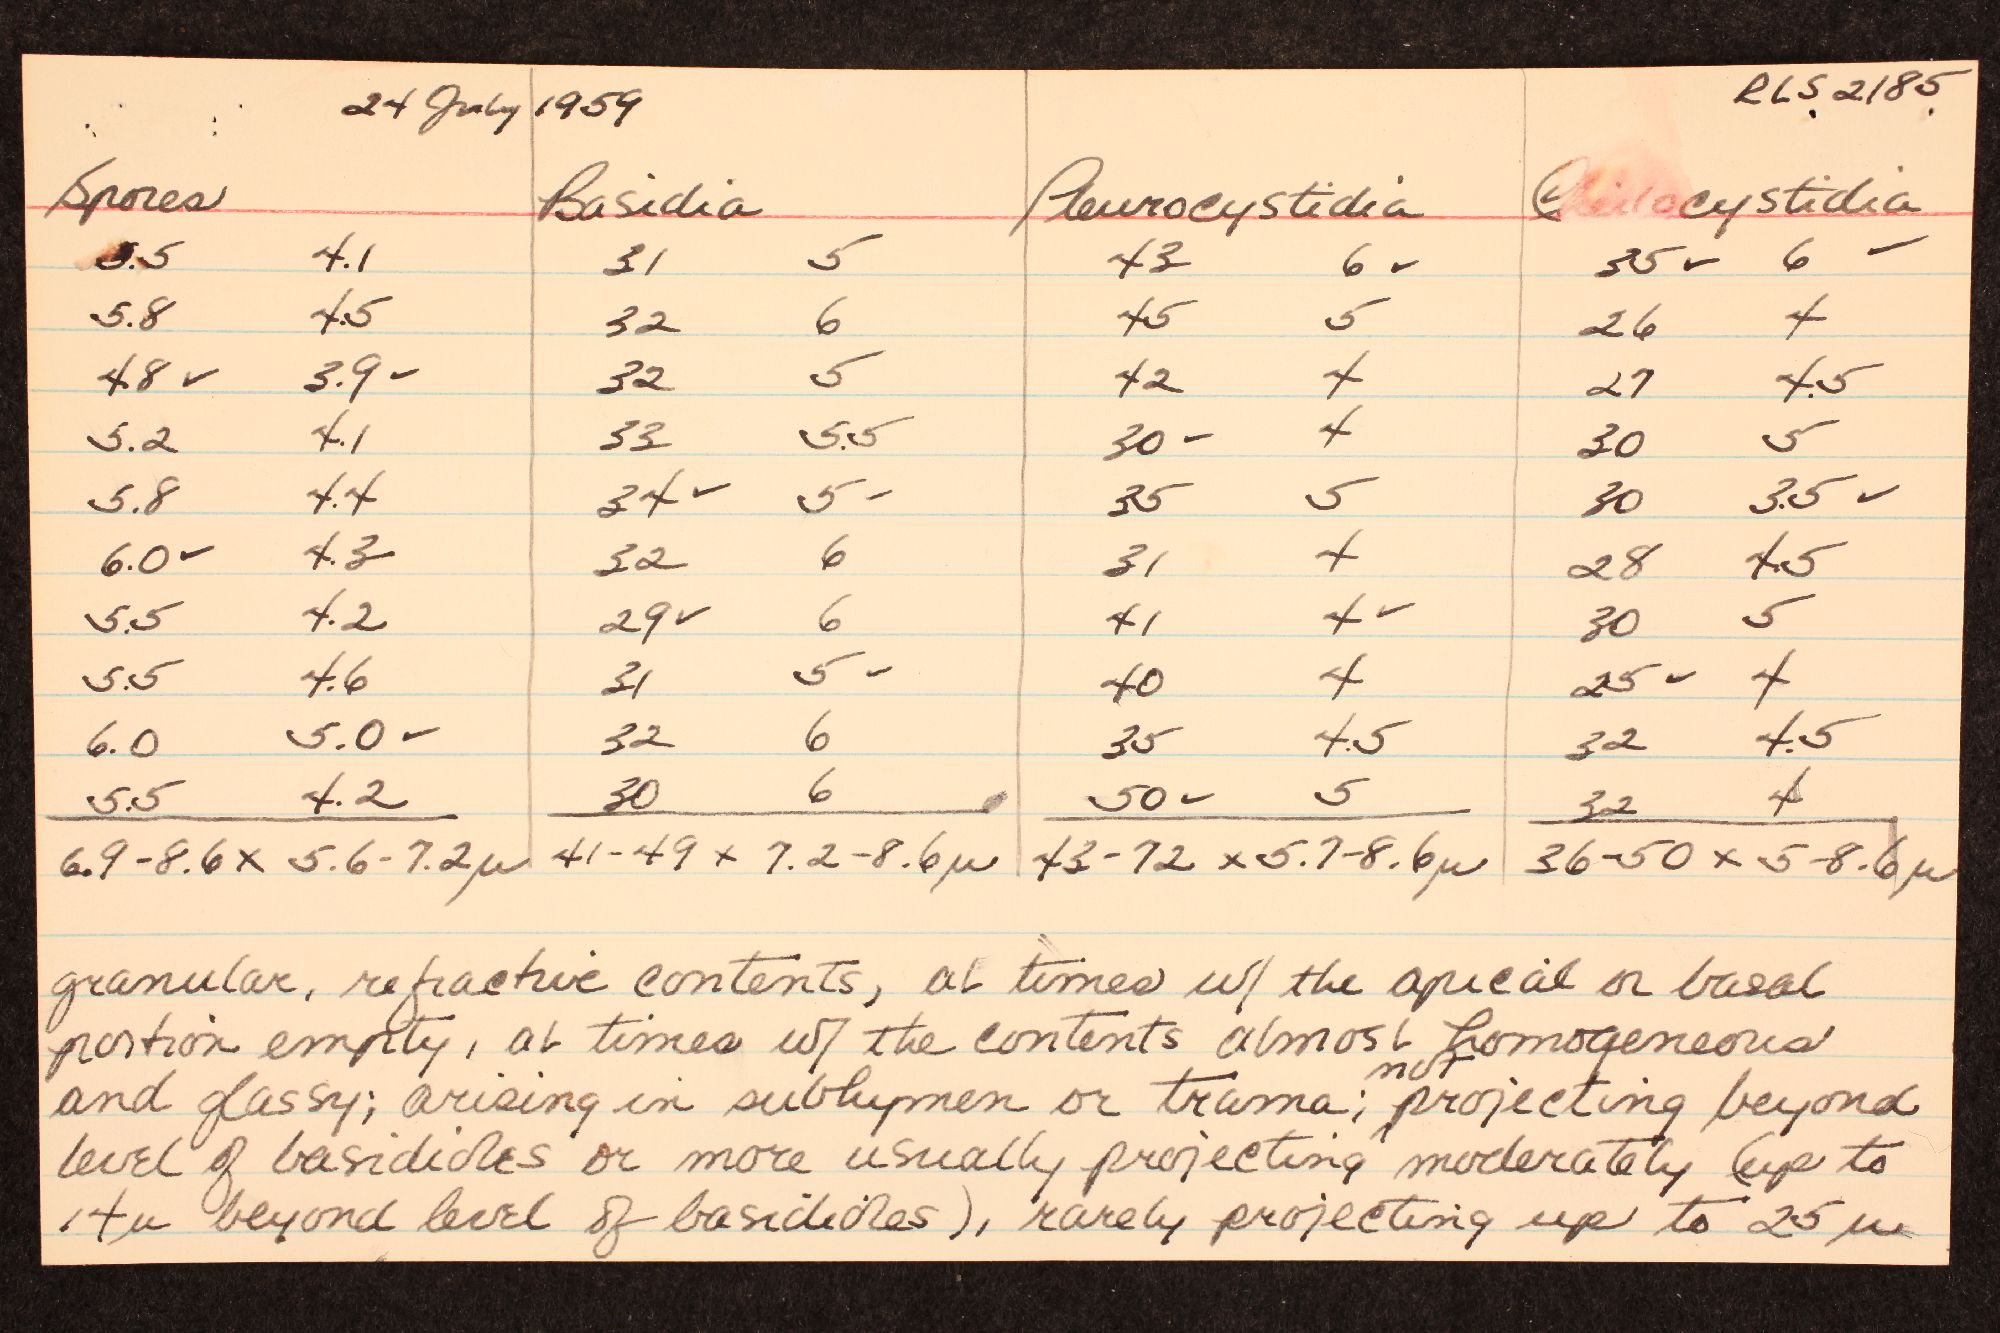 24 July 1959 RLS 2185
Spores Basidia Pleurocystidia Cheilocystidia
5.5 4.1 31 5 43 6 ✓ 35 ✓ 6 ✓
5.8 4.5 32 6 45 5 26 4
4.8 ✓ 3.9 ✓ 32 5 42 4 27 4.5
5.2 4.1 33 5.5 30 ✓ 4 30 5
5.8 4.4 34 ✓ 5 ✓ 35 5 30 3.5 ✓
6.0 ✓ 4.3 32 6 31 4 28 4.5
5.5 4.2 29 ✓ 6 41 4 ✓ 30 5
5.5 4.6 31 5 ✓ 40 4 25 ✓ 4
6.0 5.0 ✓ 32 6 35 4.5 32 4.5
5.5 4.2 30 6 50 ✓ 5 32 4
6.9-8.6 x 5.6-7.2μ 41-49 x 7.2-8.6μ 43-72 x 5.7-8.6μ 36-50 x 5-8.6μ
granular, refractive contents, at times w/ the apical or basal
portion empty, at times w/ the contents almost homogeneous
and glassy; arising in subhymen or trama; not projecting beyond
level of basidioles or more usually projecting moderately (up to
14μ beyond level of basidioles), rarely projecting up to 25 μ